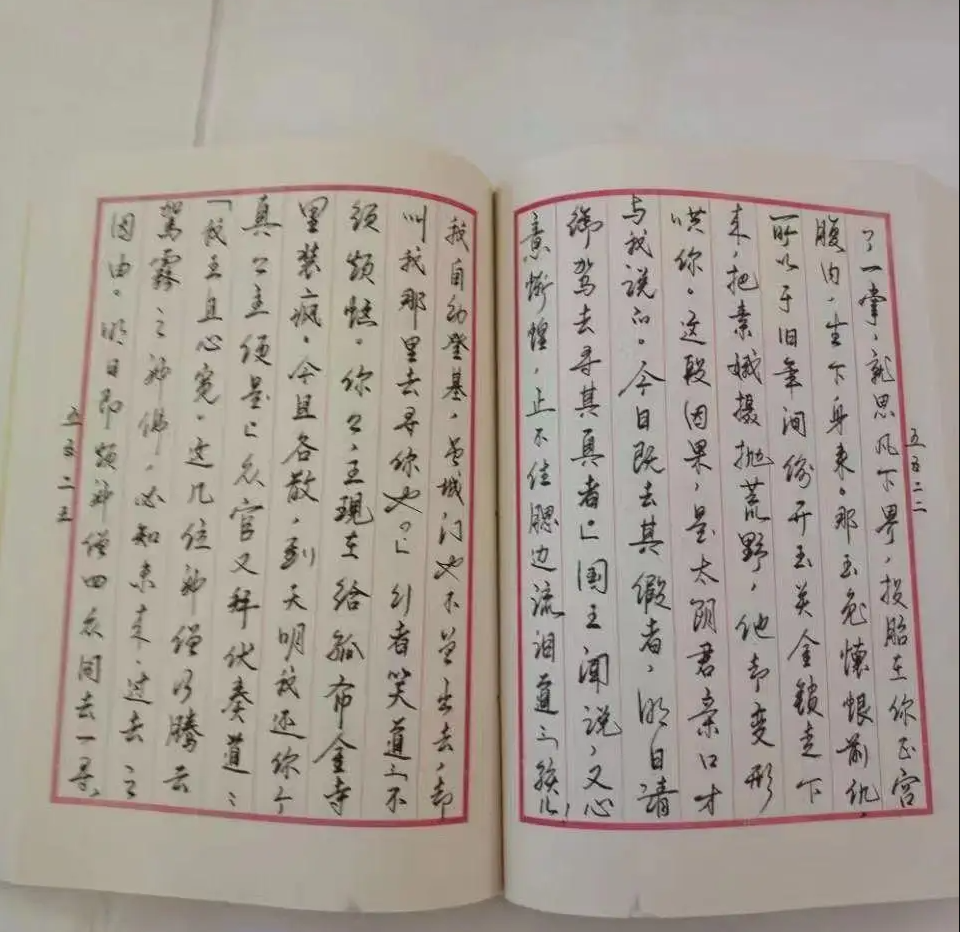 了一掌，就思凡下界，投胎在你正宫
腹内，生下身来。那玉兔懷恨前仇，
所以于旧年间偷开玉关金锁走下
来，把素娥摄抛荒野，他却变形
哄你。这段因果，是太阴君亲口才
与我说的。今日既去其假者，明日请
御驾去寻其真者」国王闻说，又心
意惭惶，止不住腮边流泪道：「孩儿！
五五二二
我自幼登基，虽城门也不曾出去，却
叫我那里去寻你也。」行者笑道：「不
须烦恼。你公主现在给孤布金寺
里装疯。今且各散，到天明我还你个
真公主便是」众官又拜伏奏道：
「我王且心宽。这几位神僧乃腾云
驾雾之神佛，必知未来、过去之
因由。明日即烦神僧四众同去一寻，
五五二三